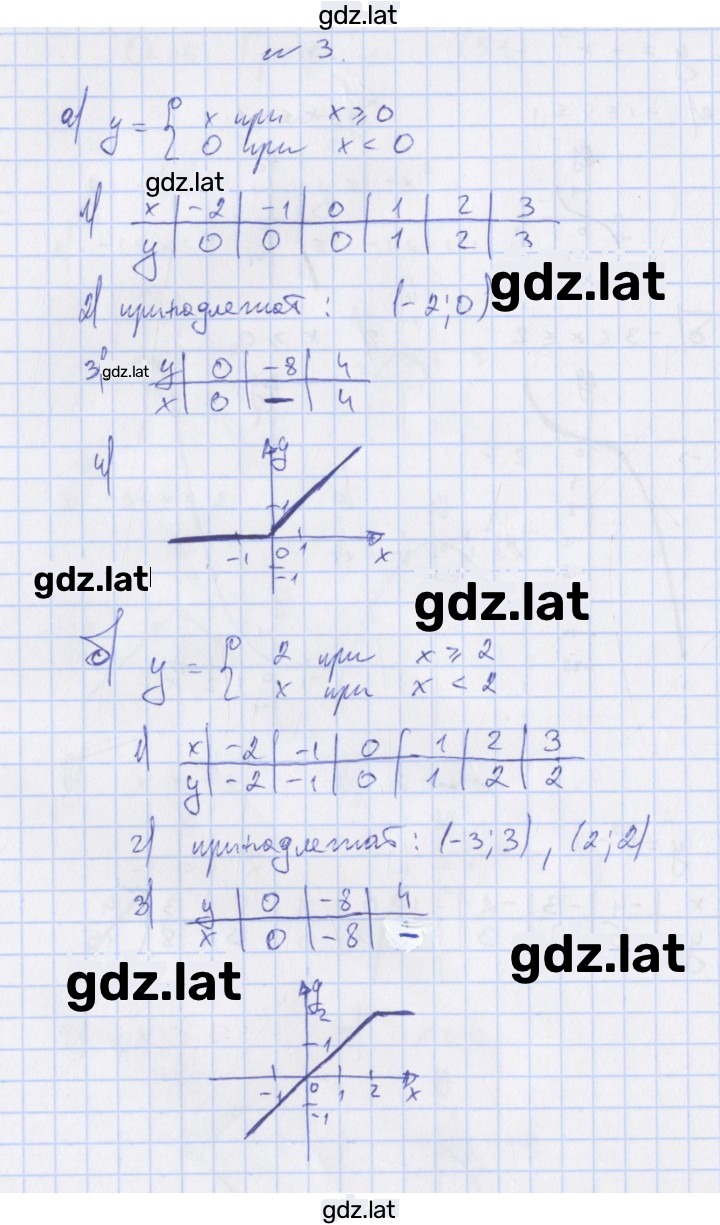 gdz.lat
№ 3.
а) y = { x при x ⩾ 0
0 при x < 0
gdz.lat
1) x | -2 | -1 | 0 | 1 | 2 | 3
y | 0 | 0 | 0 | 1 | 2 | 3
gdz.lat
2) принадлежат : (-2; 0)
3) gdz.lat y | 0 | -8 | 4
x | 0 | – | 4
4) y
1
-1 0 1 x
-1
gdz.lat
gdz.lat
б) y = { 2 при x ⩾ 2
x при x < 2
1) x | -2 | -1 | 0 | 1 | 2 | 3
y | -2 | -1 | 0 | 1 | 2 | 2
2) принадлежат : (-3; 3) , (2; 2)
3) y | 0 | -8 | 4
x | 0 | -8 | –
gdz.lat
gdz.lat
y
2
1
-1 0 1 2 x
-1
gdz.lat